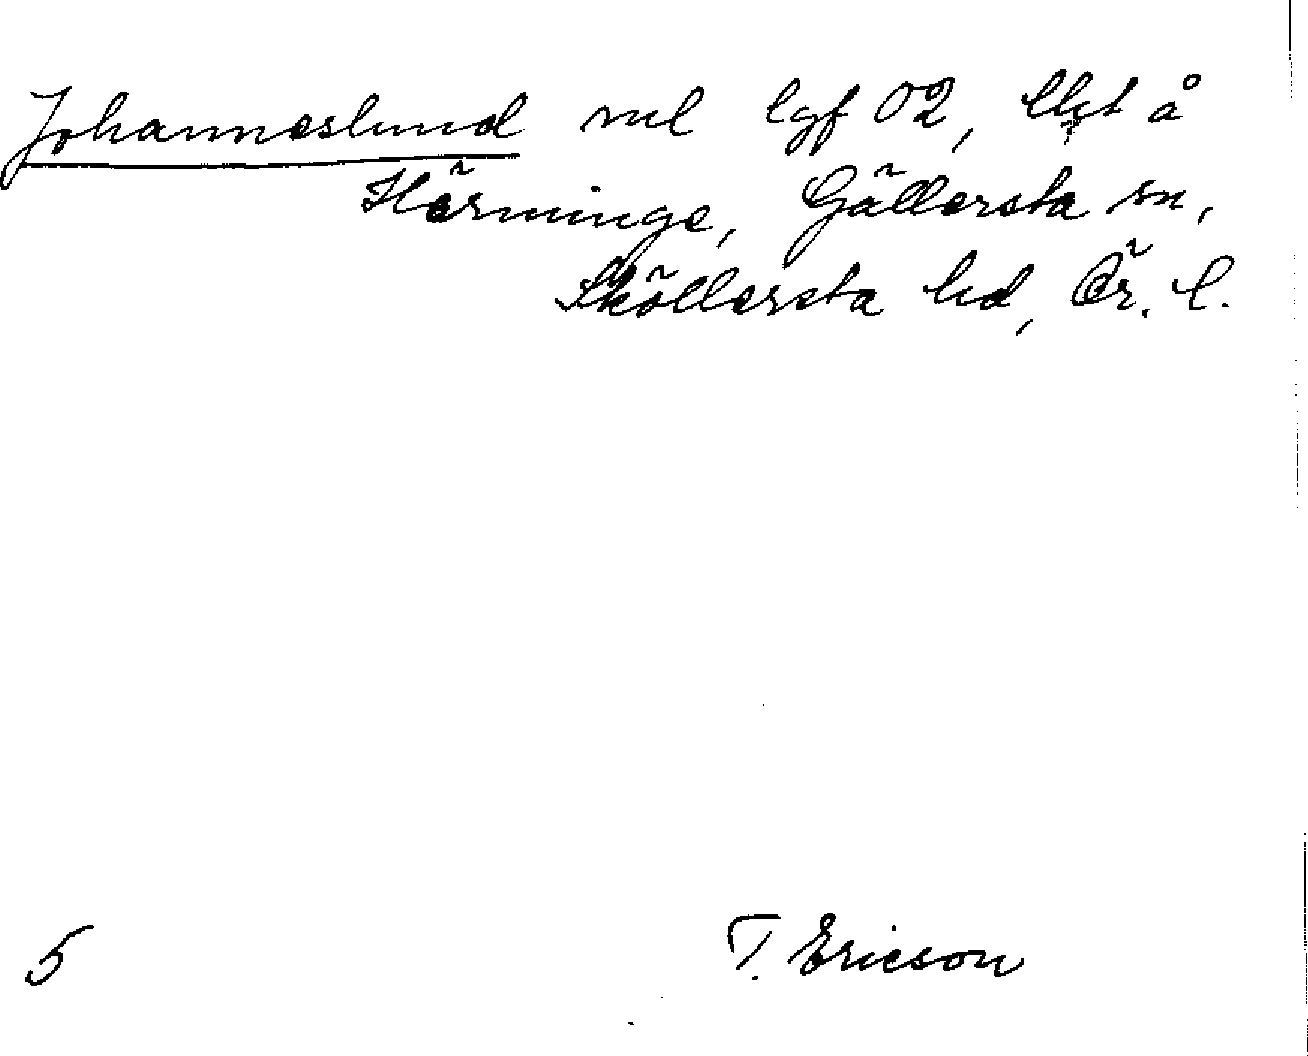 Johanneslund nul lgf 02, lht å
Härminge, Gällersta sn,
Sköllersta hd, Ör. l.
5 T. Ericson